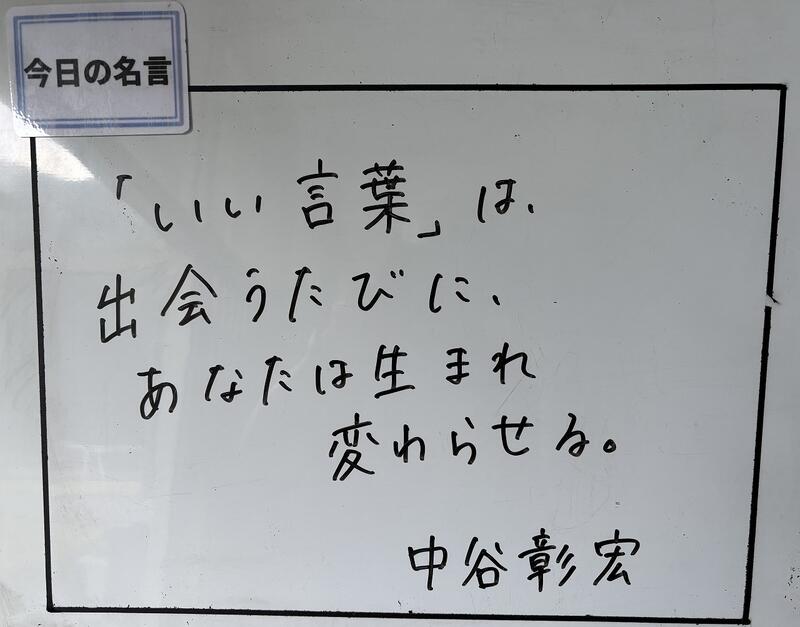 今日の名言
「いい言葉」は、
出会うたびに、
あなたは生まれ
変わらせる。
中谷彰宏